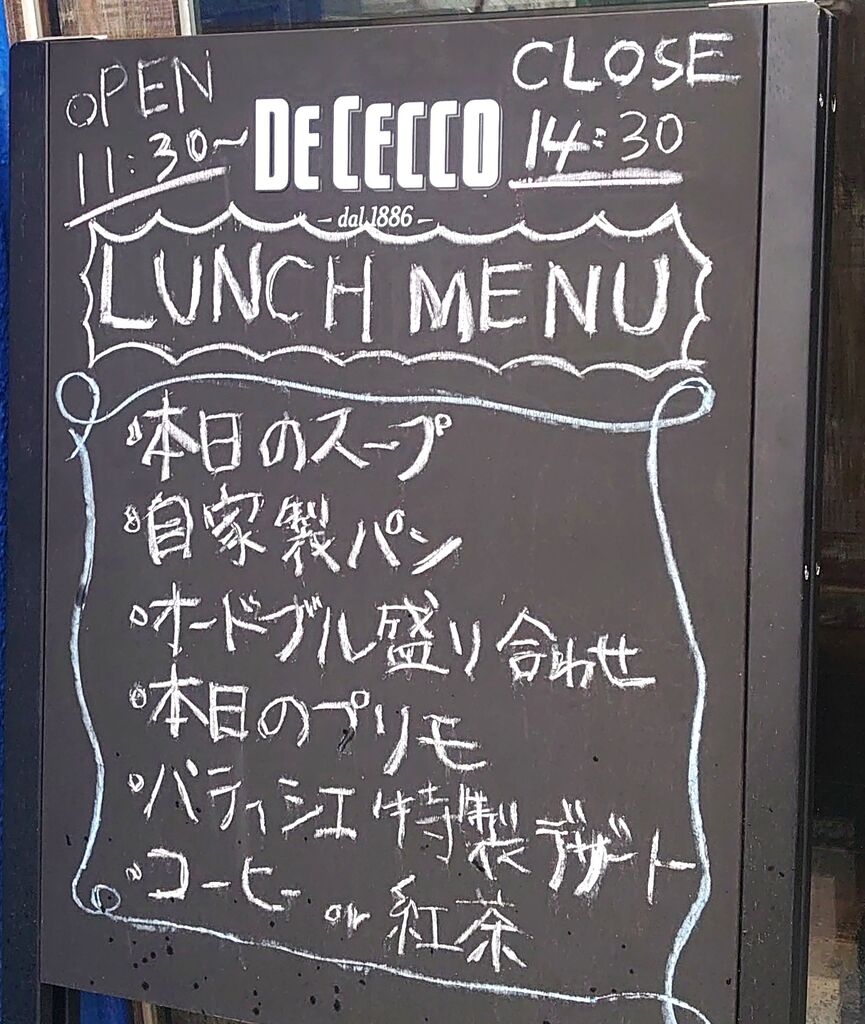 OPEN CLOSE
11:30~ DE CECCO 14:30
– dal 1886 –
LUNCH MENU
本日のスープ
自家製パン
オードブル盛り合わせ
本日のプリモ
パティシエ特製デザート
コーヒー or 紅茶